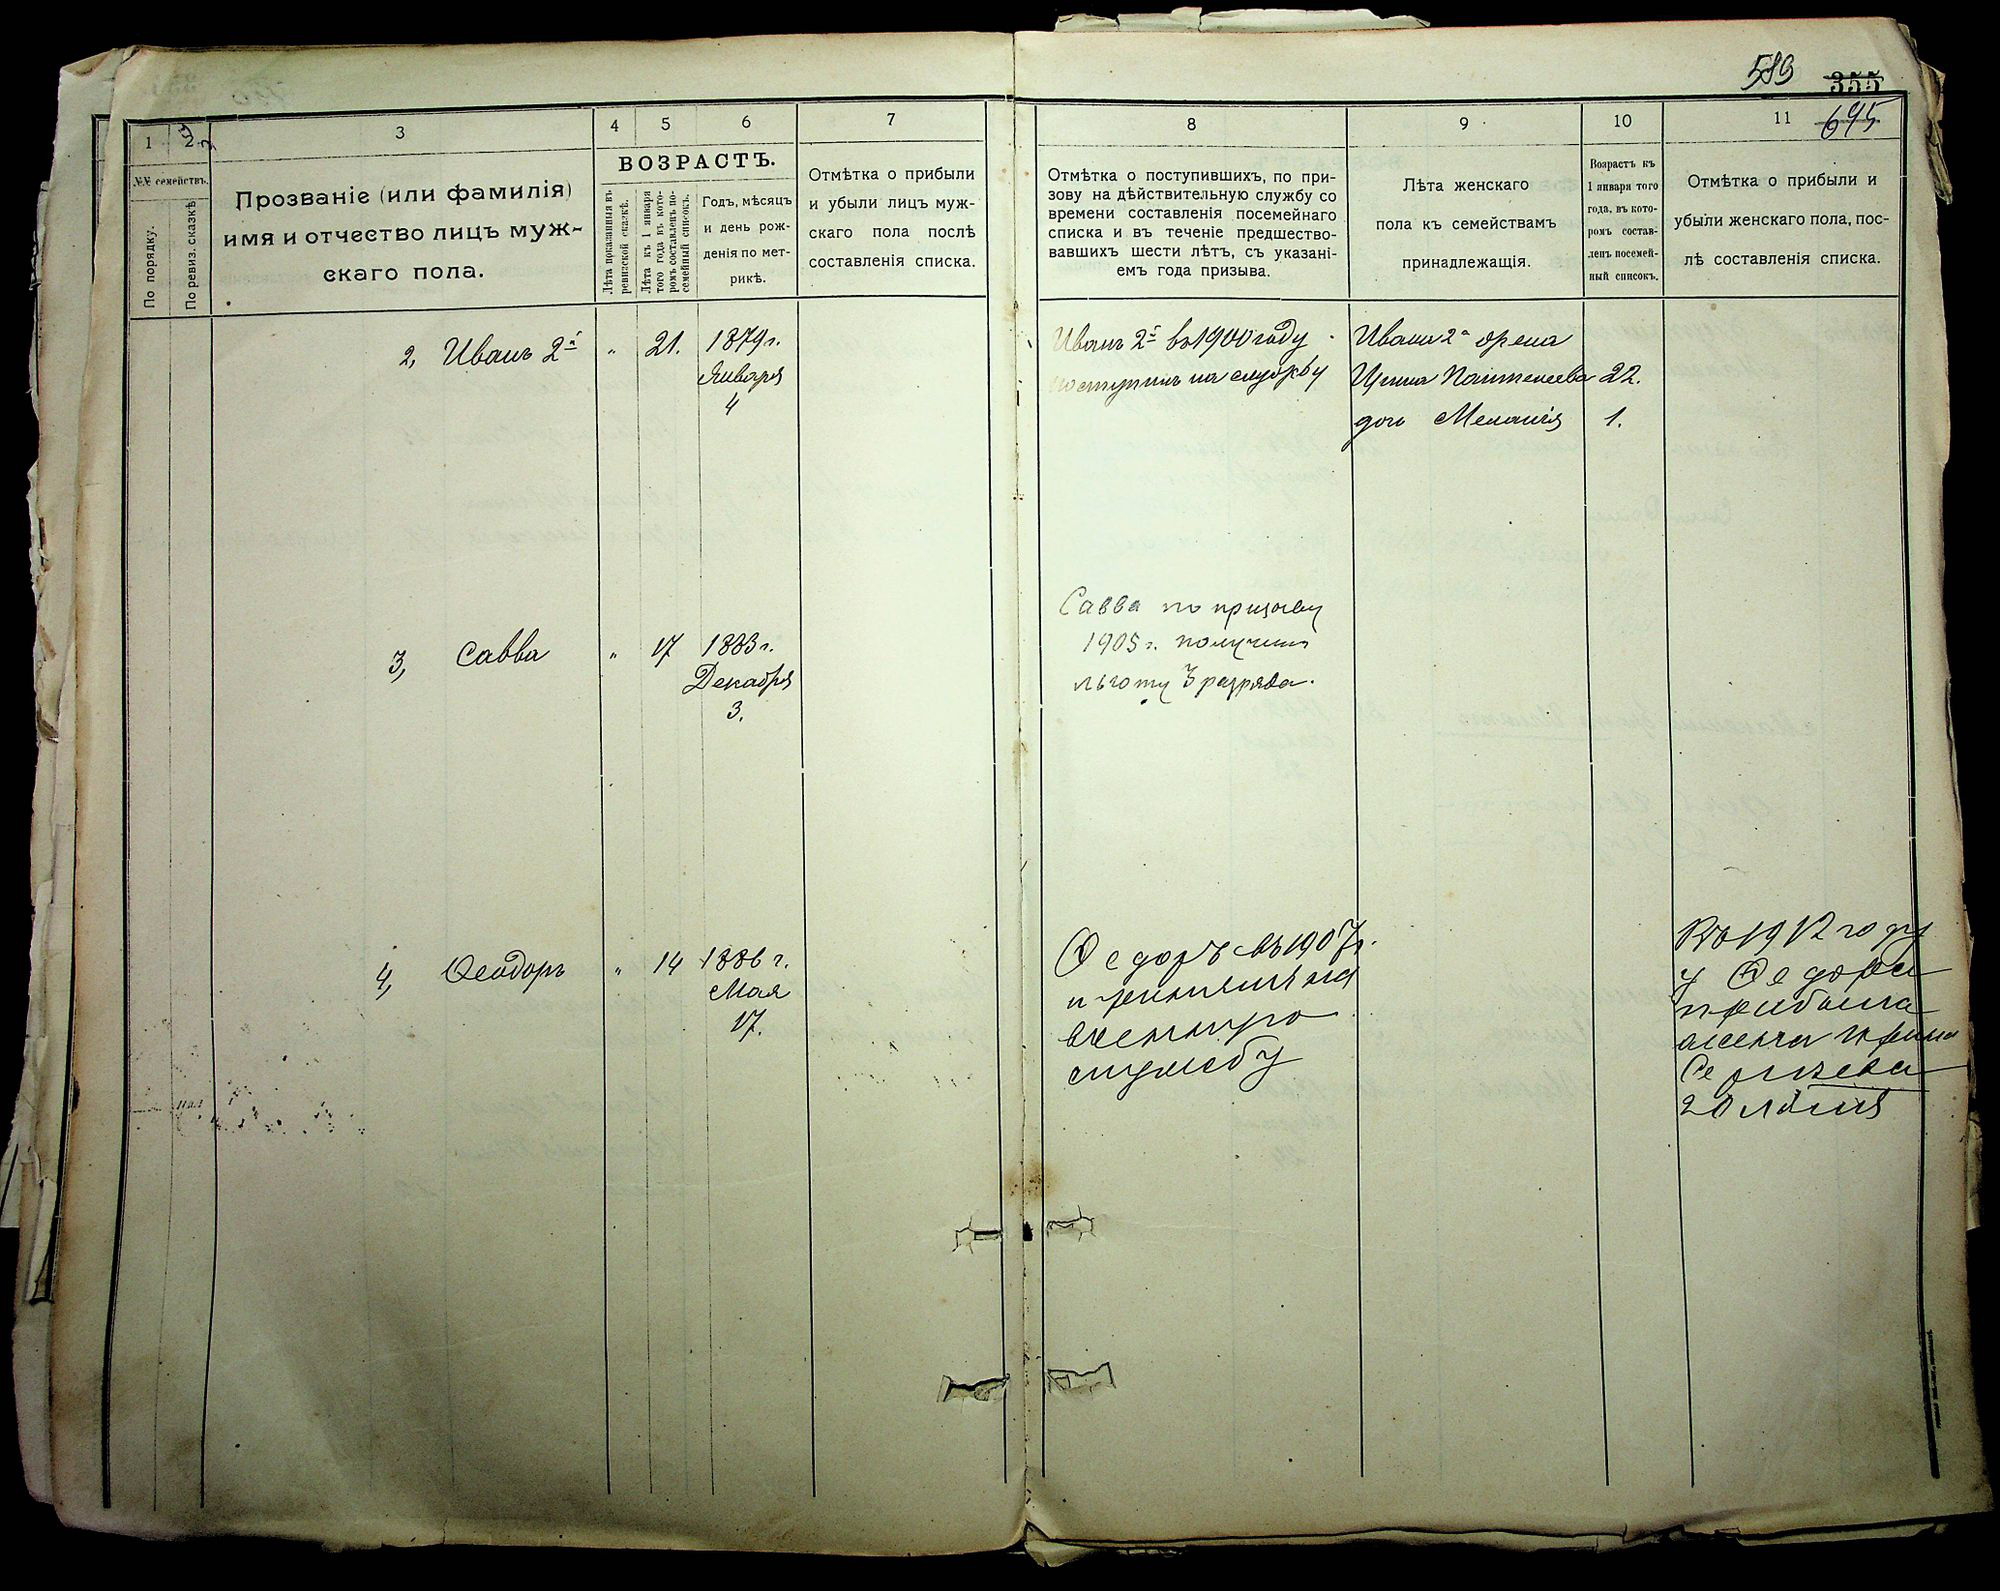 589
355
695
1
2
3
4
5
6
7
8
9
10
11
№№ семействъ.
По порядку.
По ревиз. сказкѣ
Прозваніе (или фамилія)
имя и отчество лицъ муж-
скаго пола.
ВОЗРАСТЪ.
Лѣта показанныя въ
ревизской сказкѣ.
Лѣта къ 1 января
того года въ кото-
ромъ составленъ по-
семейный списокъ.
Годъ, мѣсяцъ
и день рож-
денія по мет-
рикѣ.
Отмѣтка о прибыли
и убыли лицъ муж-
скаго пола послѣ
составленія списка.
Отмѣтка о поступившихъ, по при-
зову на дѣйствительную службу со
времени составленія посемейнаго
списка и въ теченіе предшество-
вавшихъ шести лѣтъ, съ указані-
емъ года призыва.
Лѣта женскаго
пола къ семействамъ
принадлежащія.
Возрастъ къ
1 января того
года, въ кото-
ромъ состав-
ленъ посемей-
ный списокъ.
Отмѣтка о прибыли и
убыли женскаго пола, пос-
лѣ составленія списка.
2, Иванъ 2й " 21. 1879 г.
Января
4
Иванъ 2й въ 1900 году
поступилъ на службу
Ивана 2а жена
Ирина Пантелеева 22.
дочь Меланія 1.
3, Савва " 17 1883 г.
Декабря
3.
Савва по призыву
1905 г. получилъ
льготу 3 разряда.
4, Ѳеодоръ " 14 1886 г.
Мая
17.
Ѳедоръ въ 1907 г.
принятъ на
военную
службу
Въ 1912 году
у Ѳедора
прибыла
жена Ирина
Сергѣева
20 лѣтъ